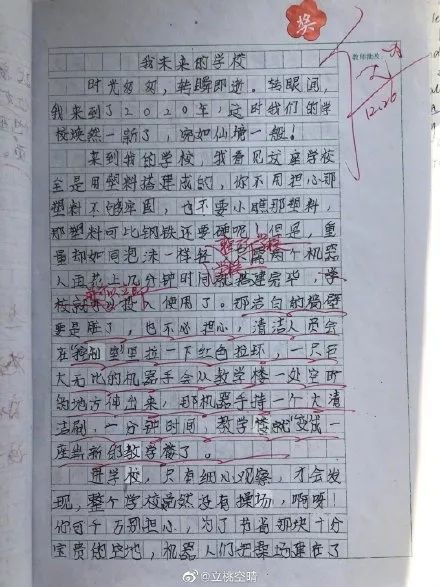 奖
教师批改
12.26
我未来的学校
时光匆匆，转瞬即逝。转眼间，
我来到了2020年，这时我们的学
校焕然一新了，宛如仙境一般！
来到我的学校，我看见这座学校
全是用塑料搭建成的，你不用担心那
塑料不够牢固，也不要小瞧那塑料，
那塑料可比钢铁还要硬呢！但是，重
量却如同泡沫一样轻，只需两个机器
人再花上几分钟时间就搭建完毕，学
校就可以投入使用了。那洁白的墙壁
要是脏了，也不必担心，清洁人员会
在控制室里拉一下红色拉环，一只巨
大无比的机器手会从教学楼一处空所
的地方伸出来，那机器手持一个大清
洁刷，一分钟时间，教学楼就变成一
座崭新的教学楼了。
进学校，只有细心观察，才会发
现，整个学校竟然没有操场，啊呀！
你可千万别担心，为了节省那块十分
宝贵的空地，机器人们把操场建在了
@立桃空晴